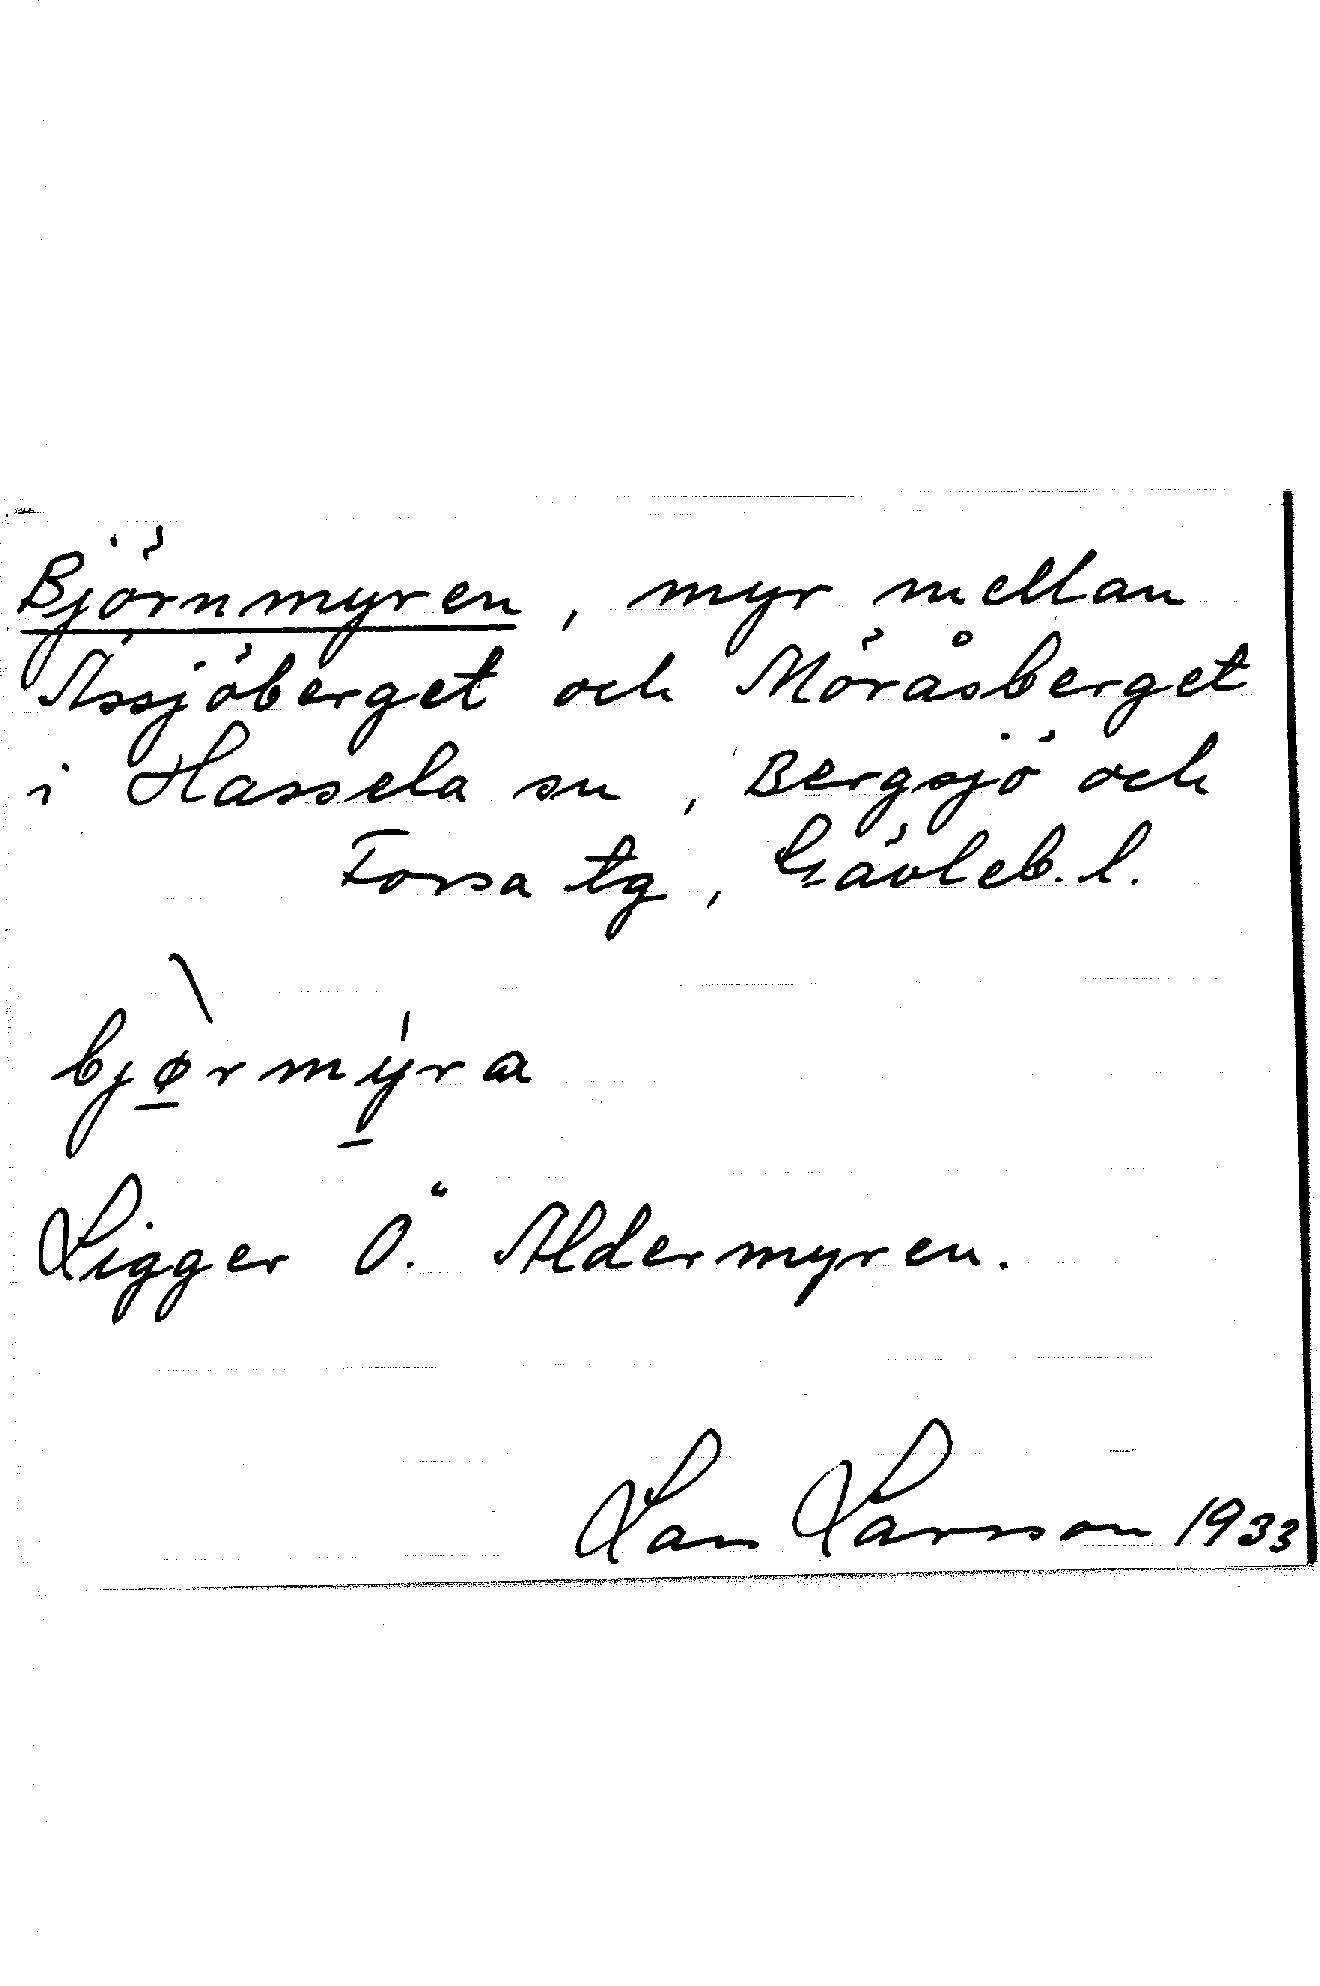 Björnmyren, myr mellan
Ässjöberget och Möråsberget
i Hassela sn, Bergsjö och
Forsa tg, Gävleb. l.
bjø̲̀rmý̲ra
Ligger Ö. Aldermyren.
Lars Larsson 1933